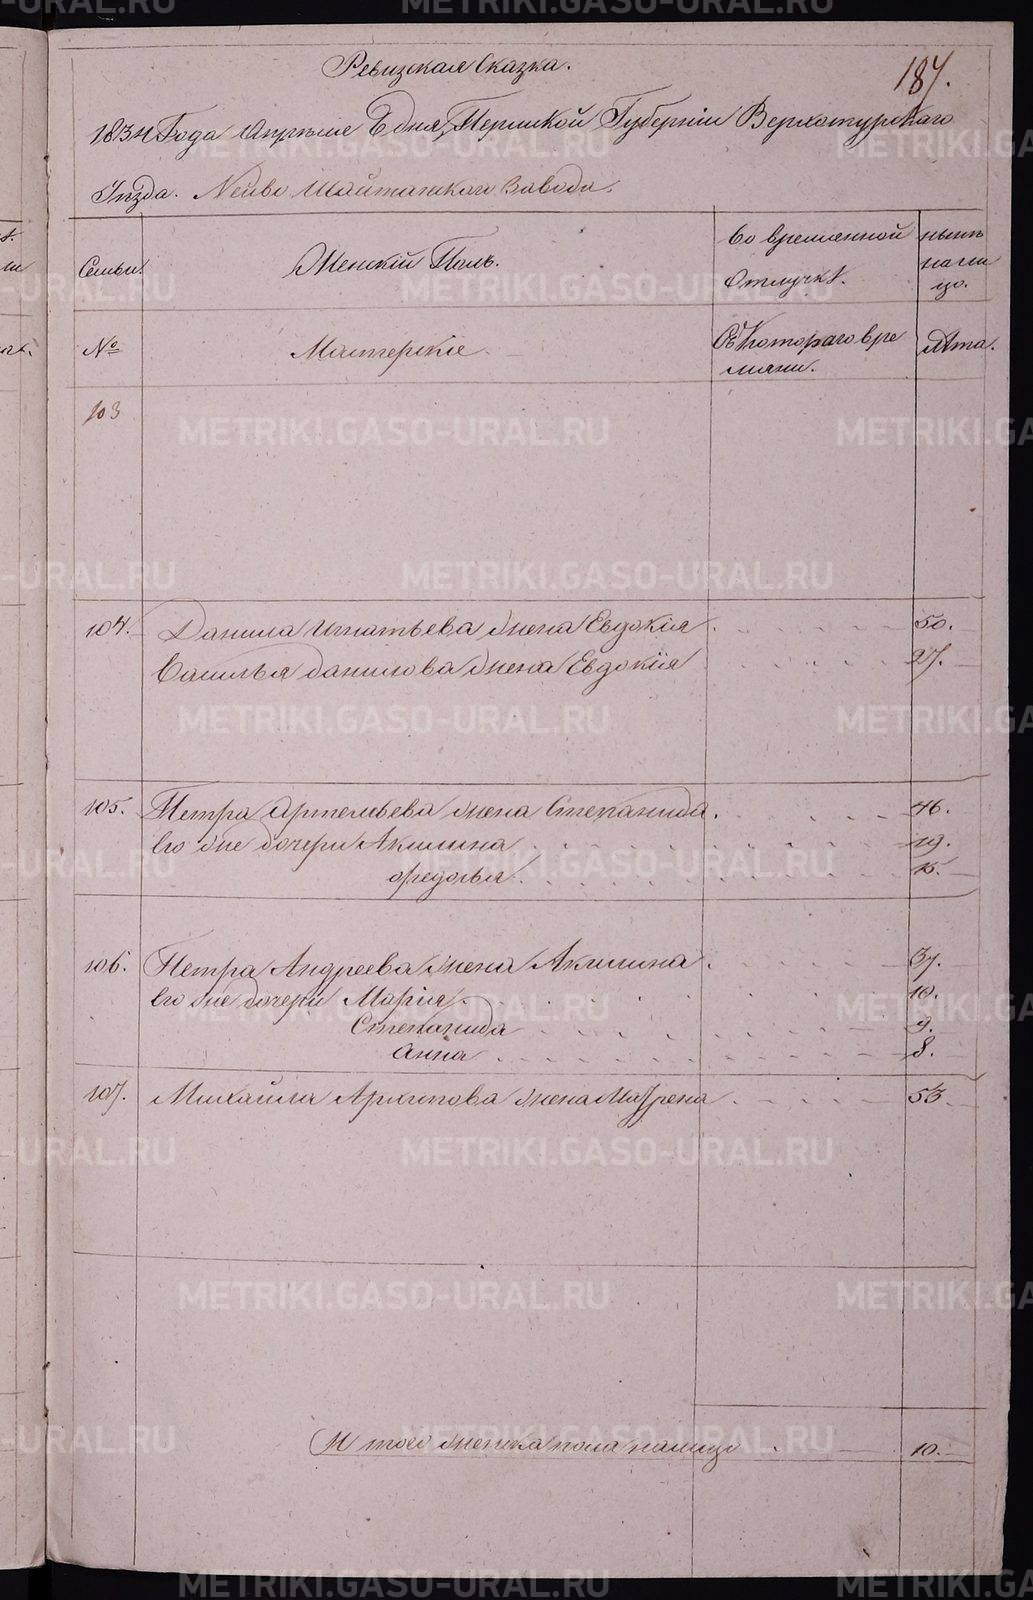 Ревизская Сказка.
187.
1834 Года Апреля Е дня, Пермской Губерніи Верхотурскаго
Уезда. Нейво Шайтанскаго Завода.
Семьи.
Женскій Полъ.
Во временной Отлучкѣ.
ныне на лицо.
№
Мастерскіе.
Съ Котораго времяни.
Лѣта.
103
104. Данила Игнатьева жена Евдокія 50.
Василья Данилова жена Евдокія 27.
105. Петра Артемьева жена Степанида 46.
Его же дочери Акилина 19.
Федосья 15.
106. Петра Андреева жена Акилина 37.
Его же дочери Марія 10.
Степанида 9.
Анна 8.
107. Михаила Архипова жена Матрена 53
И того женска пола налицо 10.
METRIKI.GASO-URAL.RU